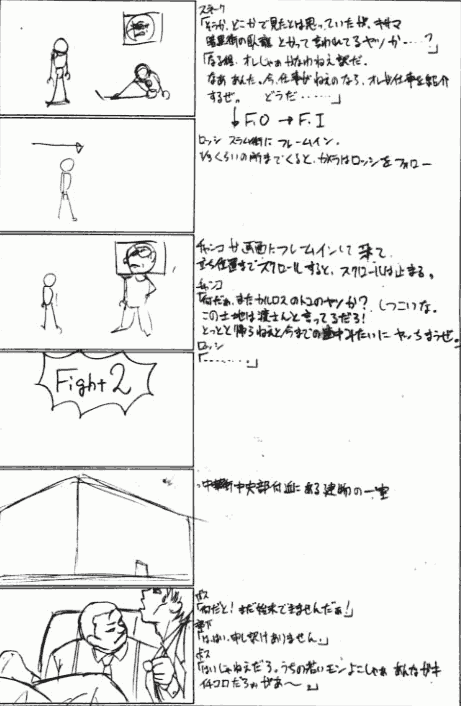 スネーク
「そうか、どこかで見たとは思っていたが、キサマ
暗黒街の臥龍とかって言われてるヤツか‥‥?
「なる程、オレじゃあかなわねえ訳だ.
なあ あんた。今、仕事がねえのなら、オレが仕事を紹介
するぜ。 どうだ‥‥‥」
↓F.O → F.I
ロッシ スラム街に フレームイン.
1/3くらいの所までくると、カメラはロッシをフォロー
チャンコが画面にフレームインして来て、
立ち位置までスクロールすると、スクロールは止まる。
チャンコ
「何だぁ、またカルロスのトコのヤツか? しつこいな。
この土地は渡さんと言ってるだろ!
とっとと帰らねえと今までの連中みたいに ヤッちまうぜ。
ロッシ
「‥‥‥‥。」
Fight 2
中華街中央部付近にある建物の一室
ボス
「何だと! まだ始末できませんだぁ!」
部下
「はっはい、申し訳ありません.」
ボス
「はいじゃねえだろ。うちの若いモンよこしゃぁ あんなガキ
イチコロだろぉがあ〜。」